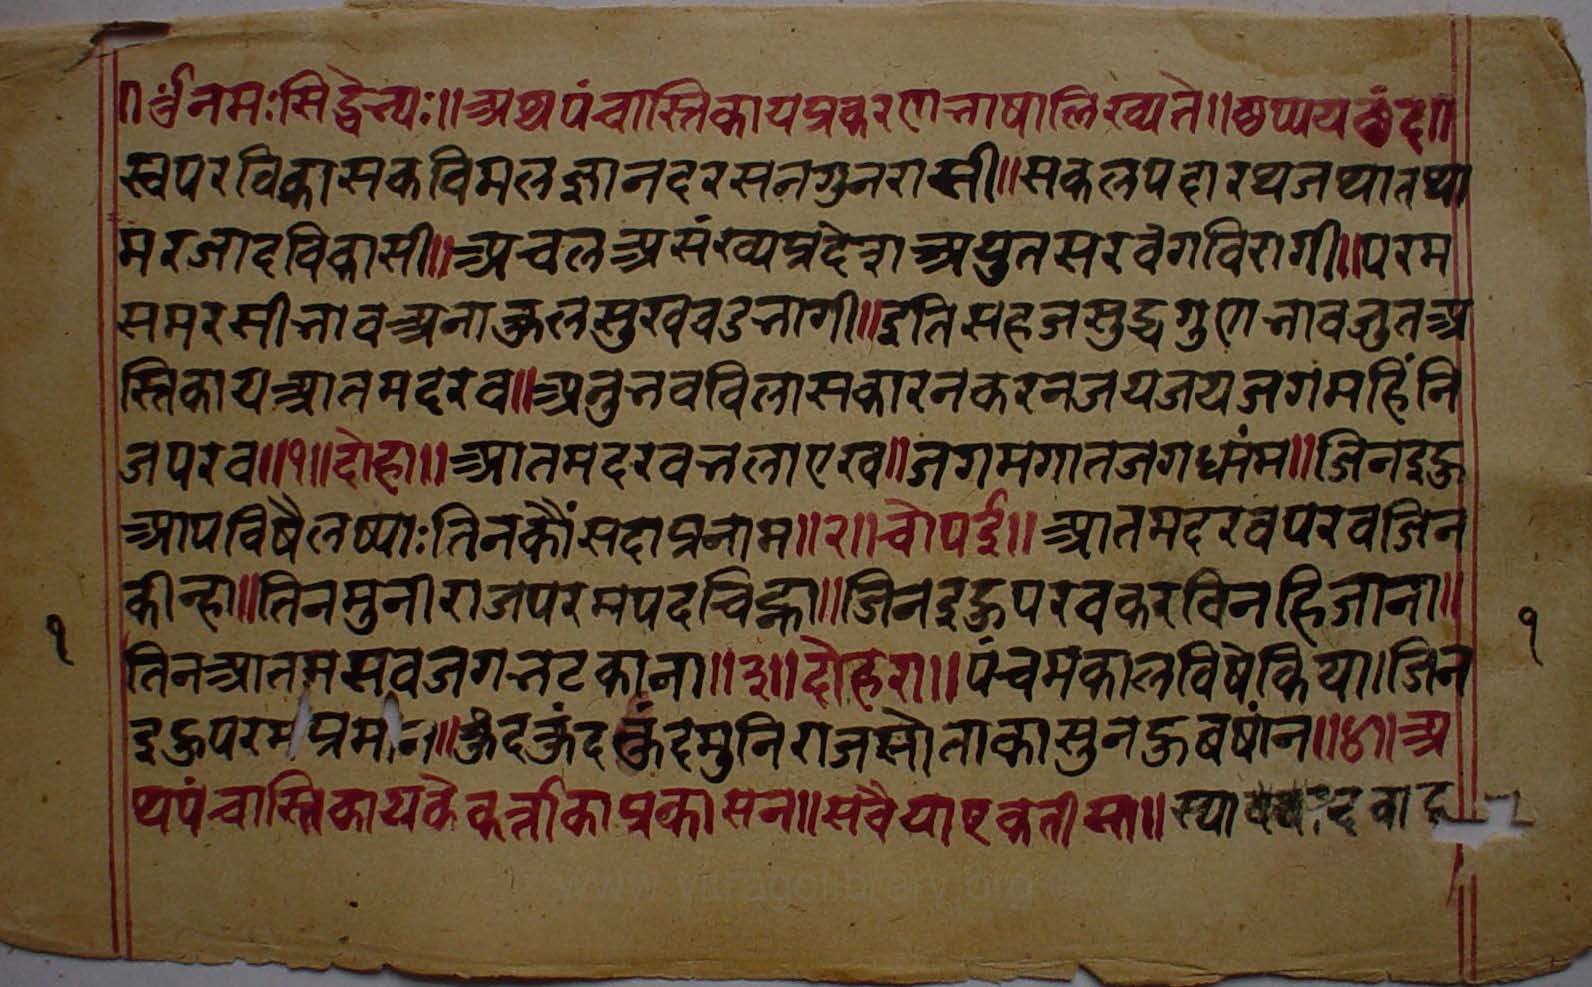 ॥ॐनमःसिद्धेभ्यः॥अथपंचास्तिकायप्रकरणभाषालिख्यते॥छप्पयछंद॥
स्वपरविकासकविमलज्ञानदरसनगुनरासी॥सकलपदारथजथातथा
मरजादविकासी॥अचलअसंख्यप्रदेशअच्युतसरवंगविरागी॥परम
समरसीभावअनाकुलसुखवडभागी॥इतिसहजसुद्धगुणभावजुतअ
स्तिकायआतमदरव॥अनुभवविलासकारनकरनजयजयजगमहिंनि
जपरव॥१॥दोहा॥आतमदरवभलाएरव॥जगमगातजगधर्मम॥जिनइह
आपविषैलष्याःतिनकौंसदाप्रनाम॥२॥चोपई॥आतमदरवपरवजिन
कीन्हा॥तिनमुनीराजपरमपदचिह्ना॥जिनइहपरवकरविनहिजाना॥
तिनआतमसवजगभटकाना॥३॥दोहरा॥पंचमकालविषेकिया।जिन
इहपरमप्रमान॥कुंदकुंदकुंदमुनिराजसोताकासुनहबषांन॥४॥अ
थपंचास्तिकायकेकर्त्ताकाप्रकासन॥सवैयाइकतीसा॥स्यादवाद
१
१
www.yuragolibrary.org